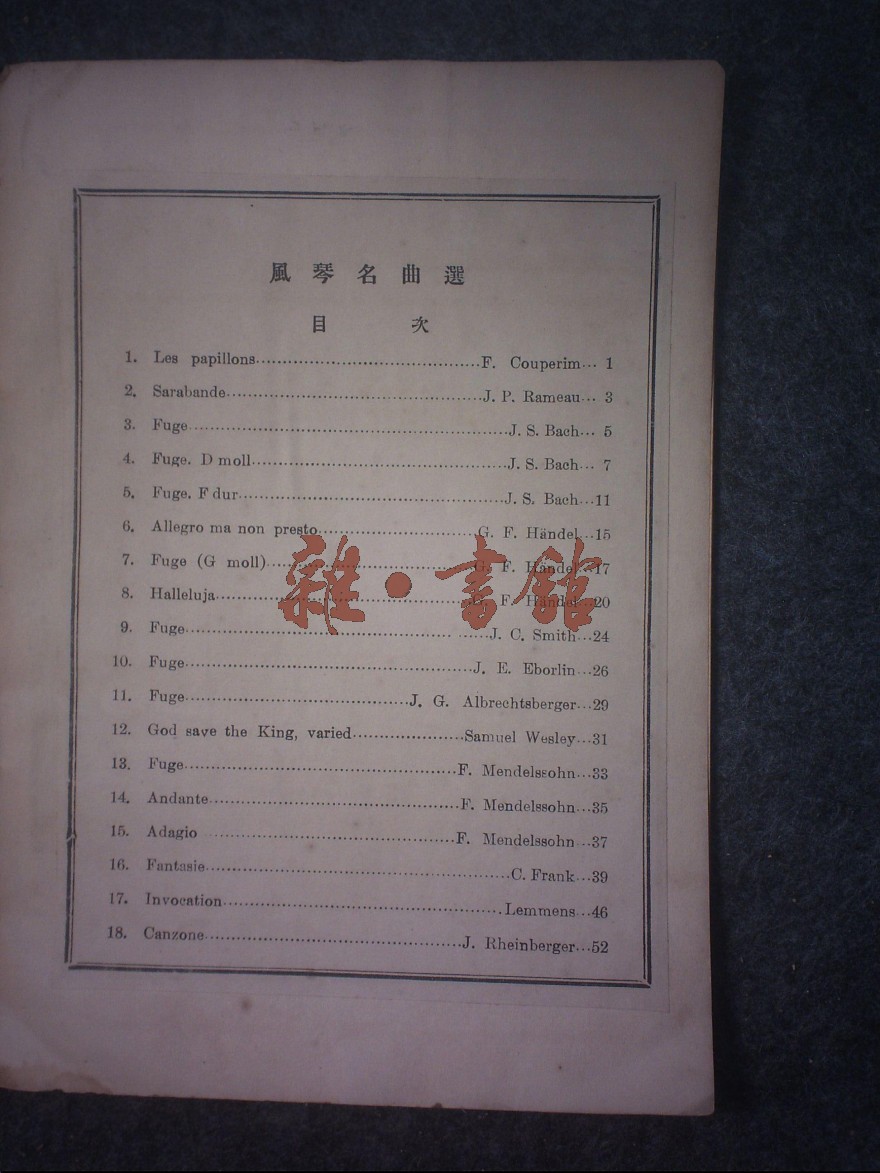 風琴名曲選
目次
1. Les papillons........................................F. Couperim... 1
2. Sarabande........................................J. P. Rameau... 3
3. Fuge........................................J. S. Bach... 5
4. Fuge. D moll........................................J. S. Bach... 7
5. Fuge. F dur........................................J. S. Bach...11
6. Allegro ma non presto........................G. F. Händel...15
7. Fuge (G moll)........................................G. F. Händel...17
8. Halleluja........................................G. F. Händel...20
9. Fuge........................................J. C. Smith...24
10. Fuge........................................J. E. Eborlin...26
11. Fuge........................................J. G. Albrechtsberger...29
12. God save the King, varied....................Samuel Wesley...31
13. Fuge........................................F. Mendelssohn...33
14. Andante........................................F. Mendelssohn...35
15. Adagio........................................F. Mendelssohn...37
16. Fantasie........................................C. Frank...39
17. Invocation........................................Lemmens...46
18. Canzone........................................J. Rheinberger...52
雜·書館